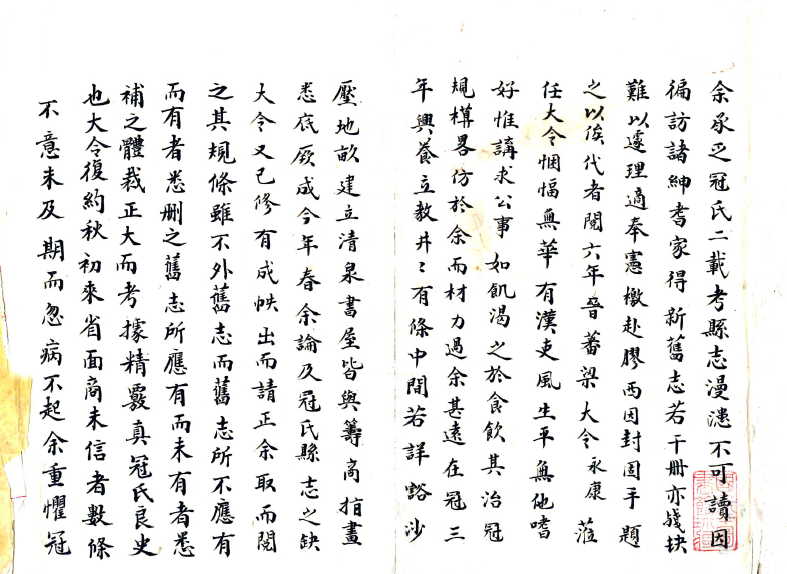 余承乏冠氏二載考縣志漫漶不可讀因
徧訪諸紳耆家得新舊志若干冊亦殘缺
難以遽理適奉憲檄赴膠西因封固手題
之以俟代者閱六年晉蕃梁大令永康蒞
任大令悃愊無華有漢吏風生平無他嗜
好惟講求公事如飢渴之於食飲其治冠
規橅畧仿於余而材力過余甚遠在冠三
年興養立教井〻有條中間若詳豁沙
壓地畝建立清泉書屋皆與籌商指畫
悉底厥成今年春余論及冠氏縣志之缺
大令又已修有成帙出而請正余取而閱
之其規條雖不外舊志而舊志所不應有
而有者悉刪之舊志所應有而未有者悉
補之體裁正大而考據精覈真冠氏良史
也大令復約秋初來省面商未信者數條
不意未及期而忽病不起余重懼冠